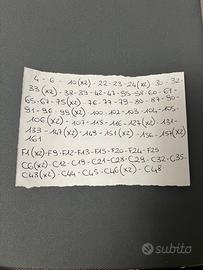 4 - 6 - 10(x2) - 22 - 23 - 24(x2) - 30 - 32 -
33(x2) - 38 - 39 - 42 - 47 - 55 - 58 - 60 - 61 -
65 - 67 - 75(x2) - 76 - 77 - 79 - 80 - 87 - 90 -
91 - 96 - 99(x2) - 100 - 102 - 103 - 104 - 105 -
106(x2) - 107 - 115 - 116 - 127(x2) - 131 -
133 - 147(x2) - 149 - 151(x2) - 156 - 157(x2)
161
F1(x2) - F9 - F12 - F13 - F15 - F20 - F24 - F25
C6(x2) - C12 - C19 - C21 - C28 - C29 - C32 - C35 -
C43(x2) - C44 - C45 - C46(x2) - C48
subito